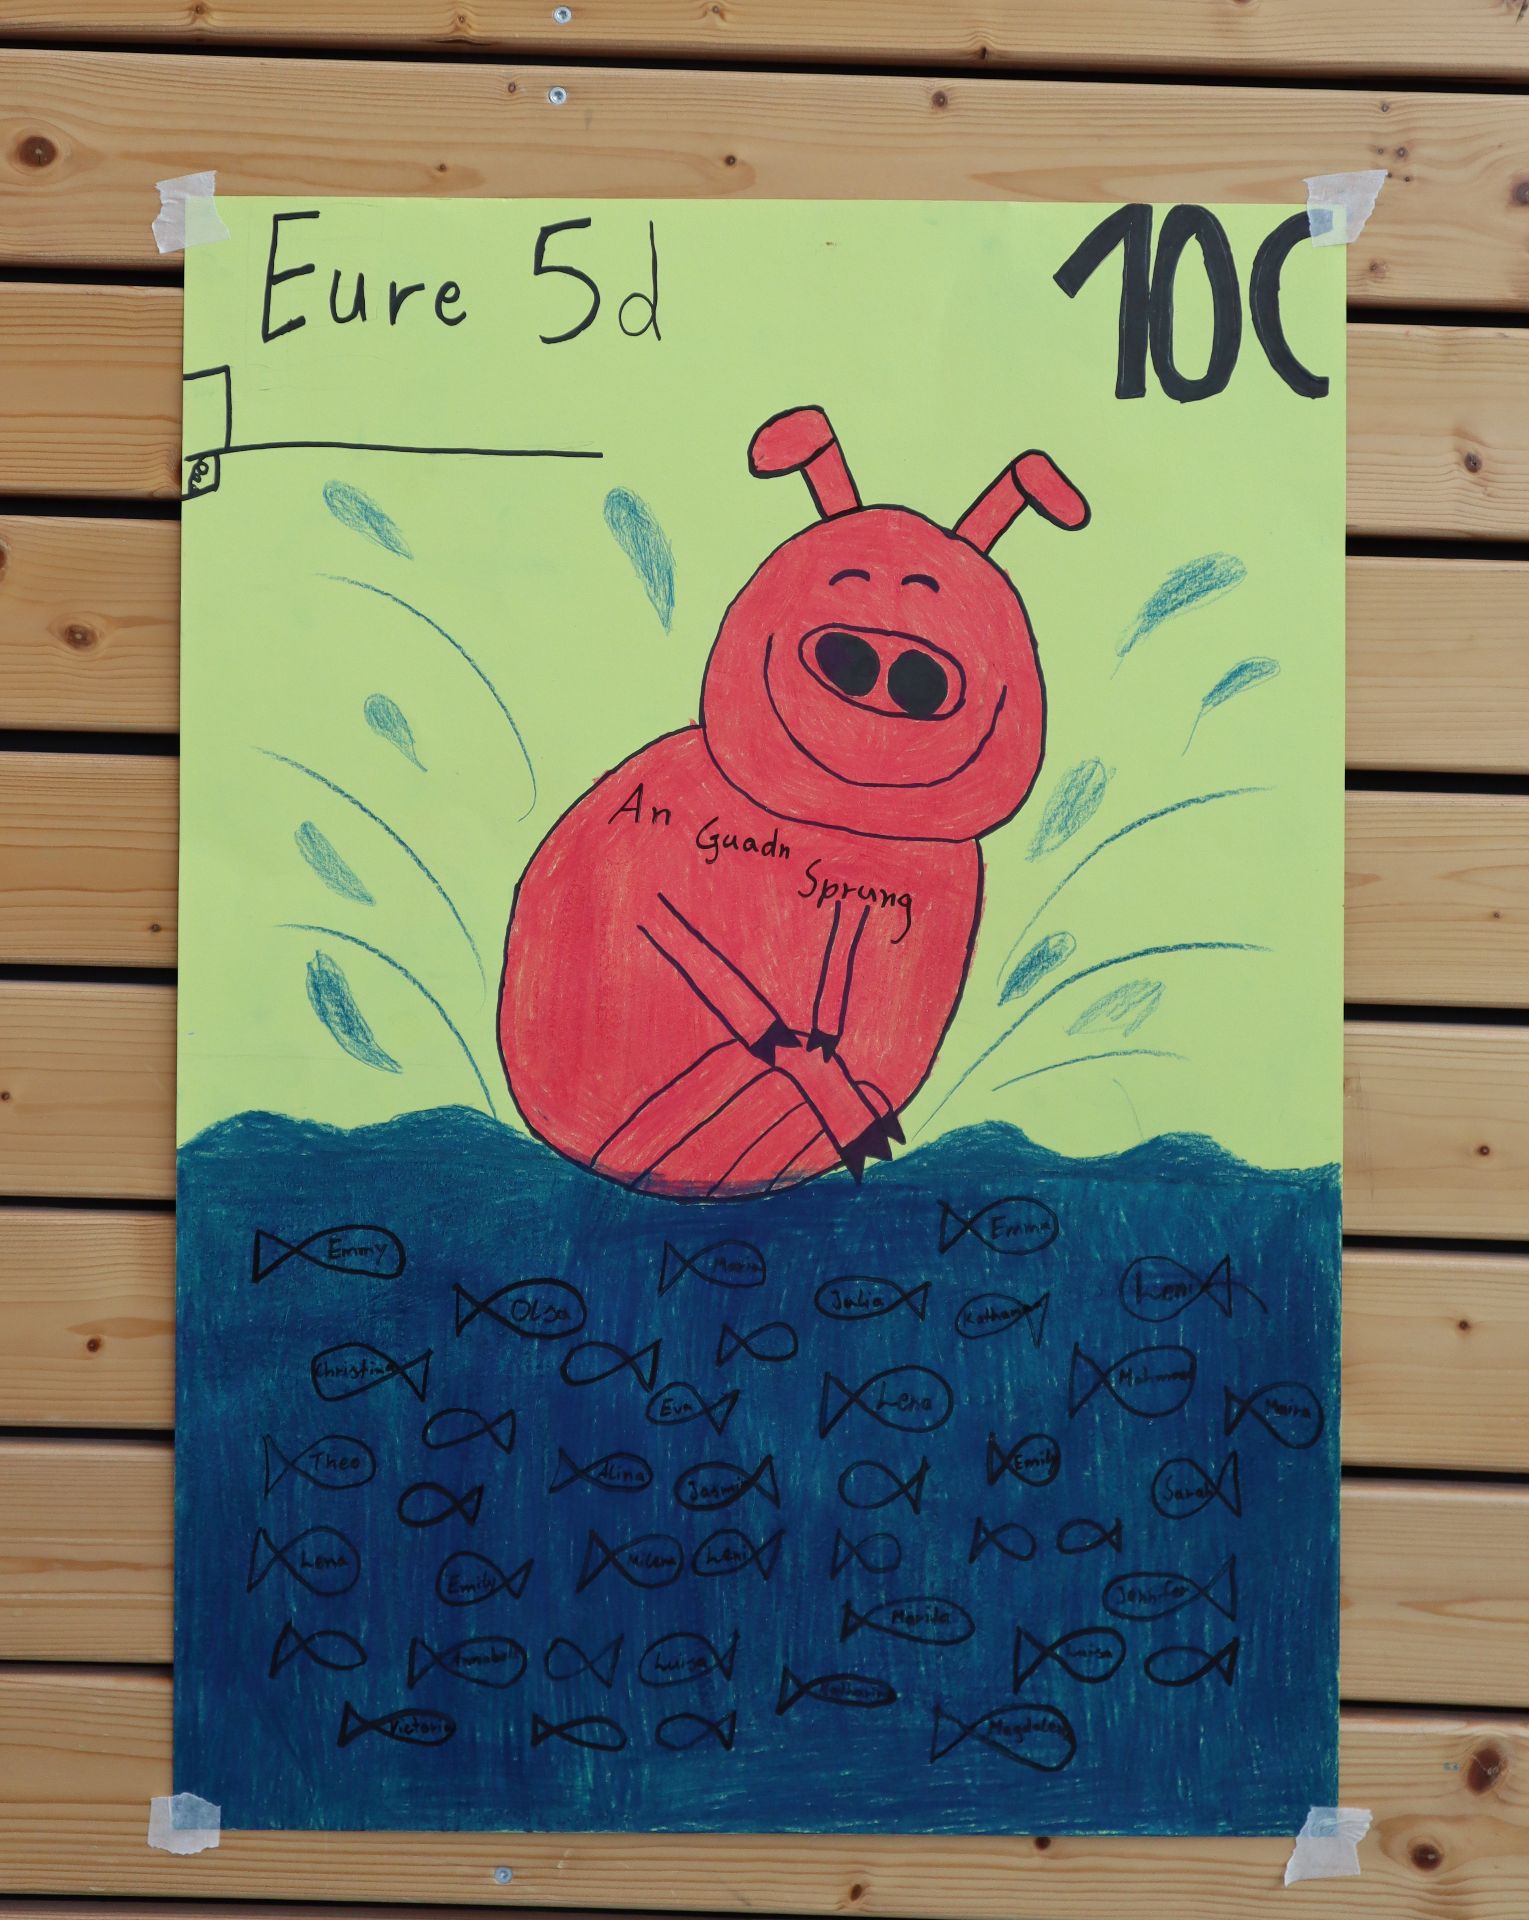 Eure 5d
10C
An
Guadn
Sprung
Emmy
Maria
Emma
Olga
Julia
Katharina
Leni
Christina
Eva
Lena
Mahmood
Maira
Theo
Alina
Jasmin
Emily
Sarah
Lena
Emily
Milena
Leni
Jennifer
Marida
Annabell
Luisa
Luisa
Katharina
Victoria
Magdalena